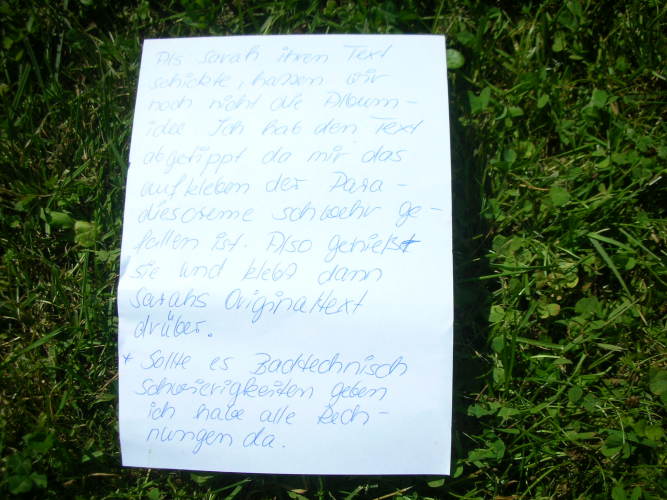 Als Sarah ihren Text
schickte, hatten wir
noch nicht die Album-
idee. Ich hab den Text
abgetippt da mir das
aufkleben der Para-
diescreme schwehr ge-
fallen ist. Also genießt
sie und klebt dann
Sarahs Originaltext
drüber.
* Sollte es Backtechnisch
schwierigkeiten geben
ich habe alle Rech-
nungen da.